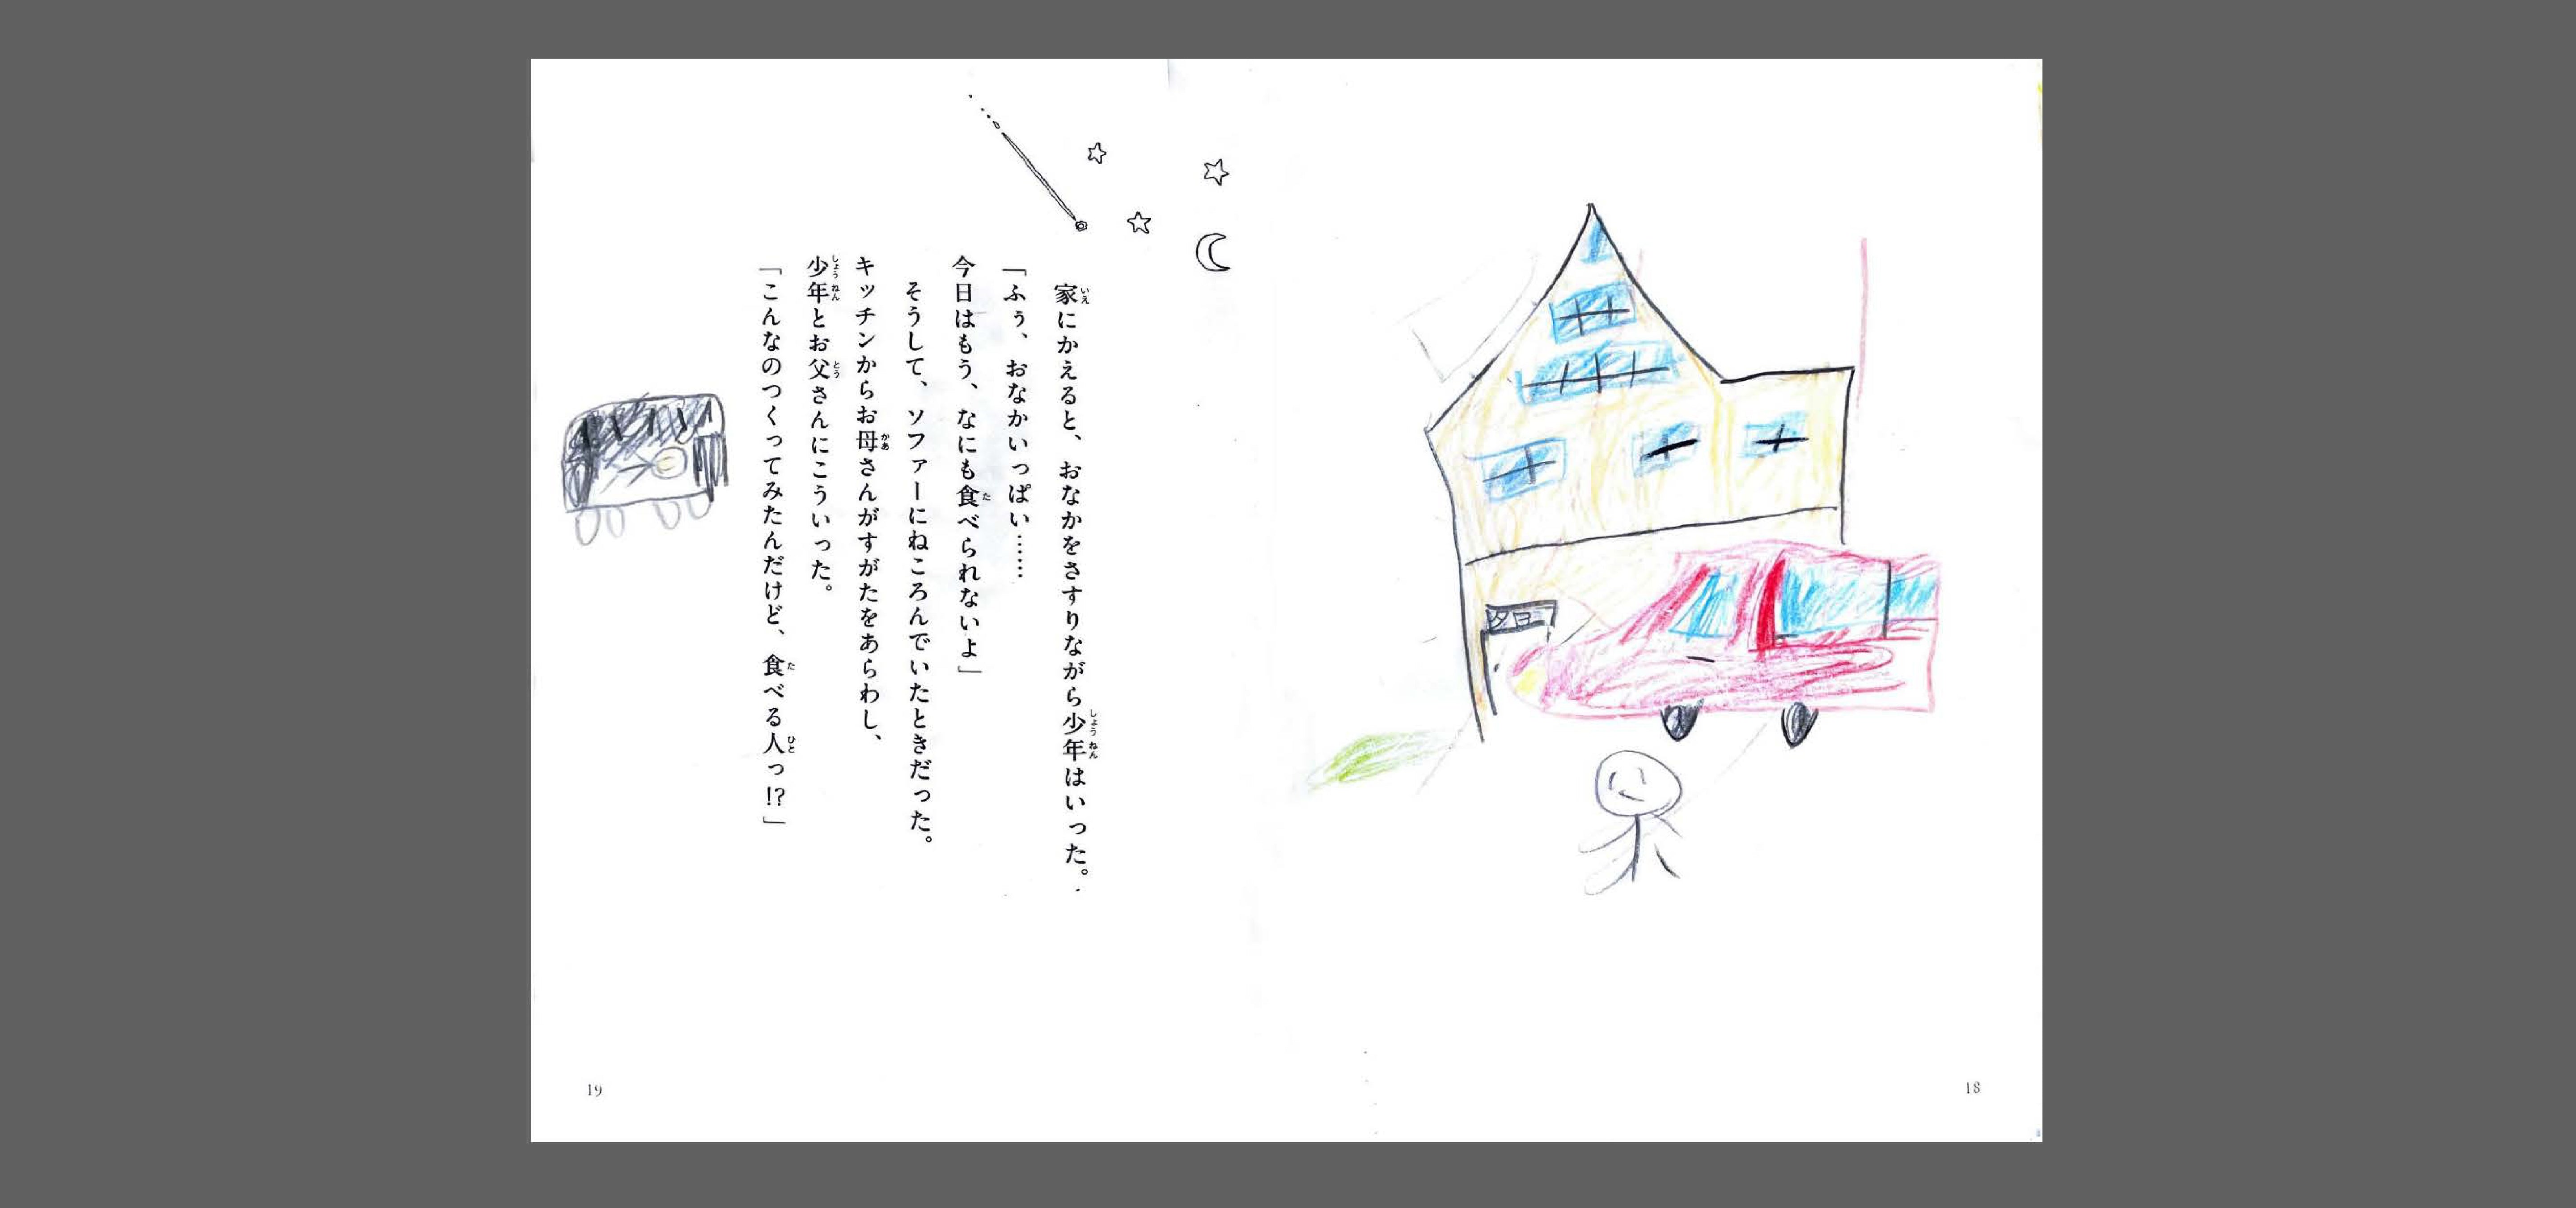 家にかえると、おなかをさすりながら少年はいった。
「ふぅ、おなかいっぱい……
今日はもう、なにも食べられないよ」
そうして、ソファーにねころんでいたときだった。
キッチンからお母さんがすがたをあらわし、
少年とお父さんにこういった。
「こんなのつくってみたんだけど、食べる人っ!?」
18
19